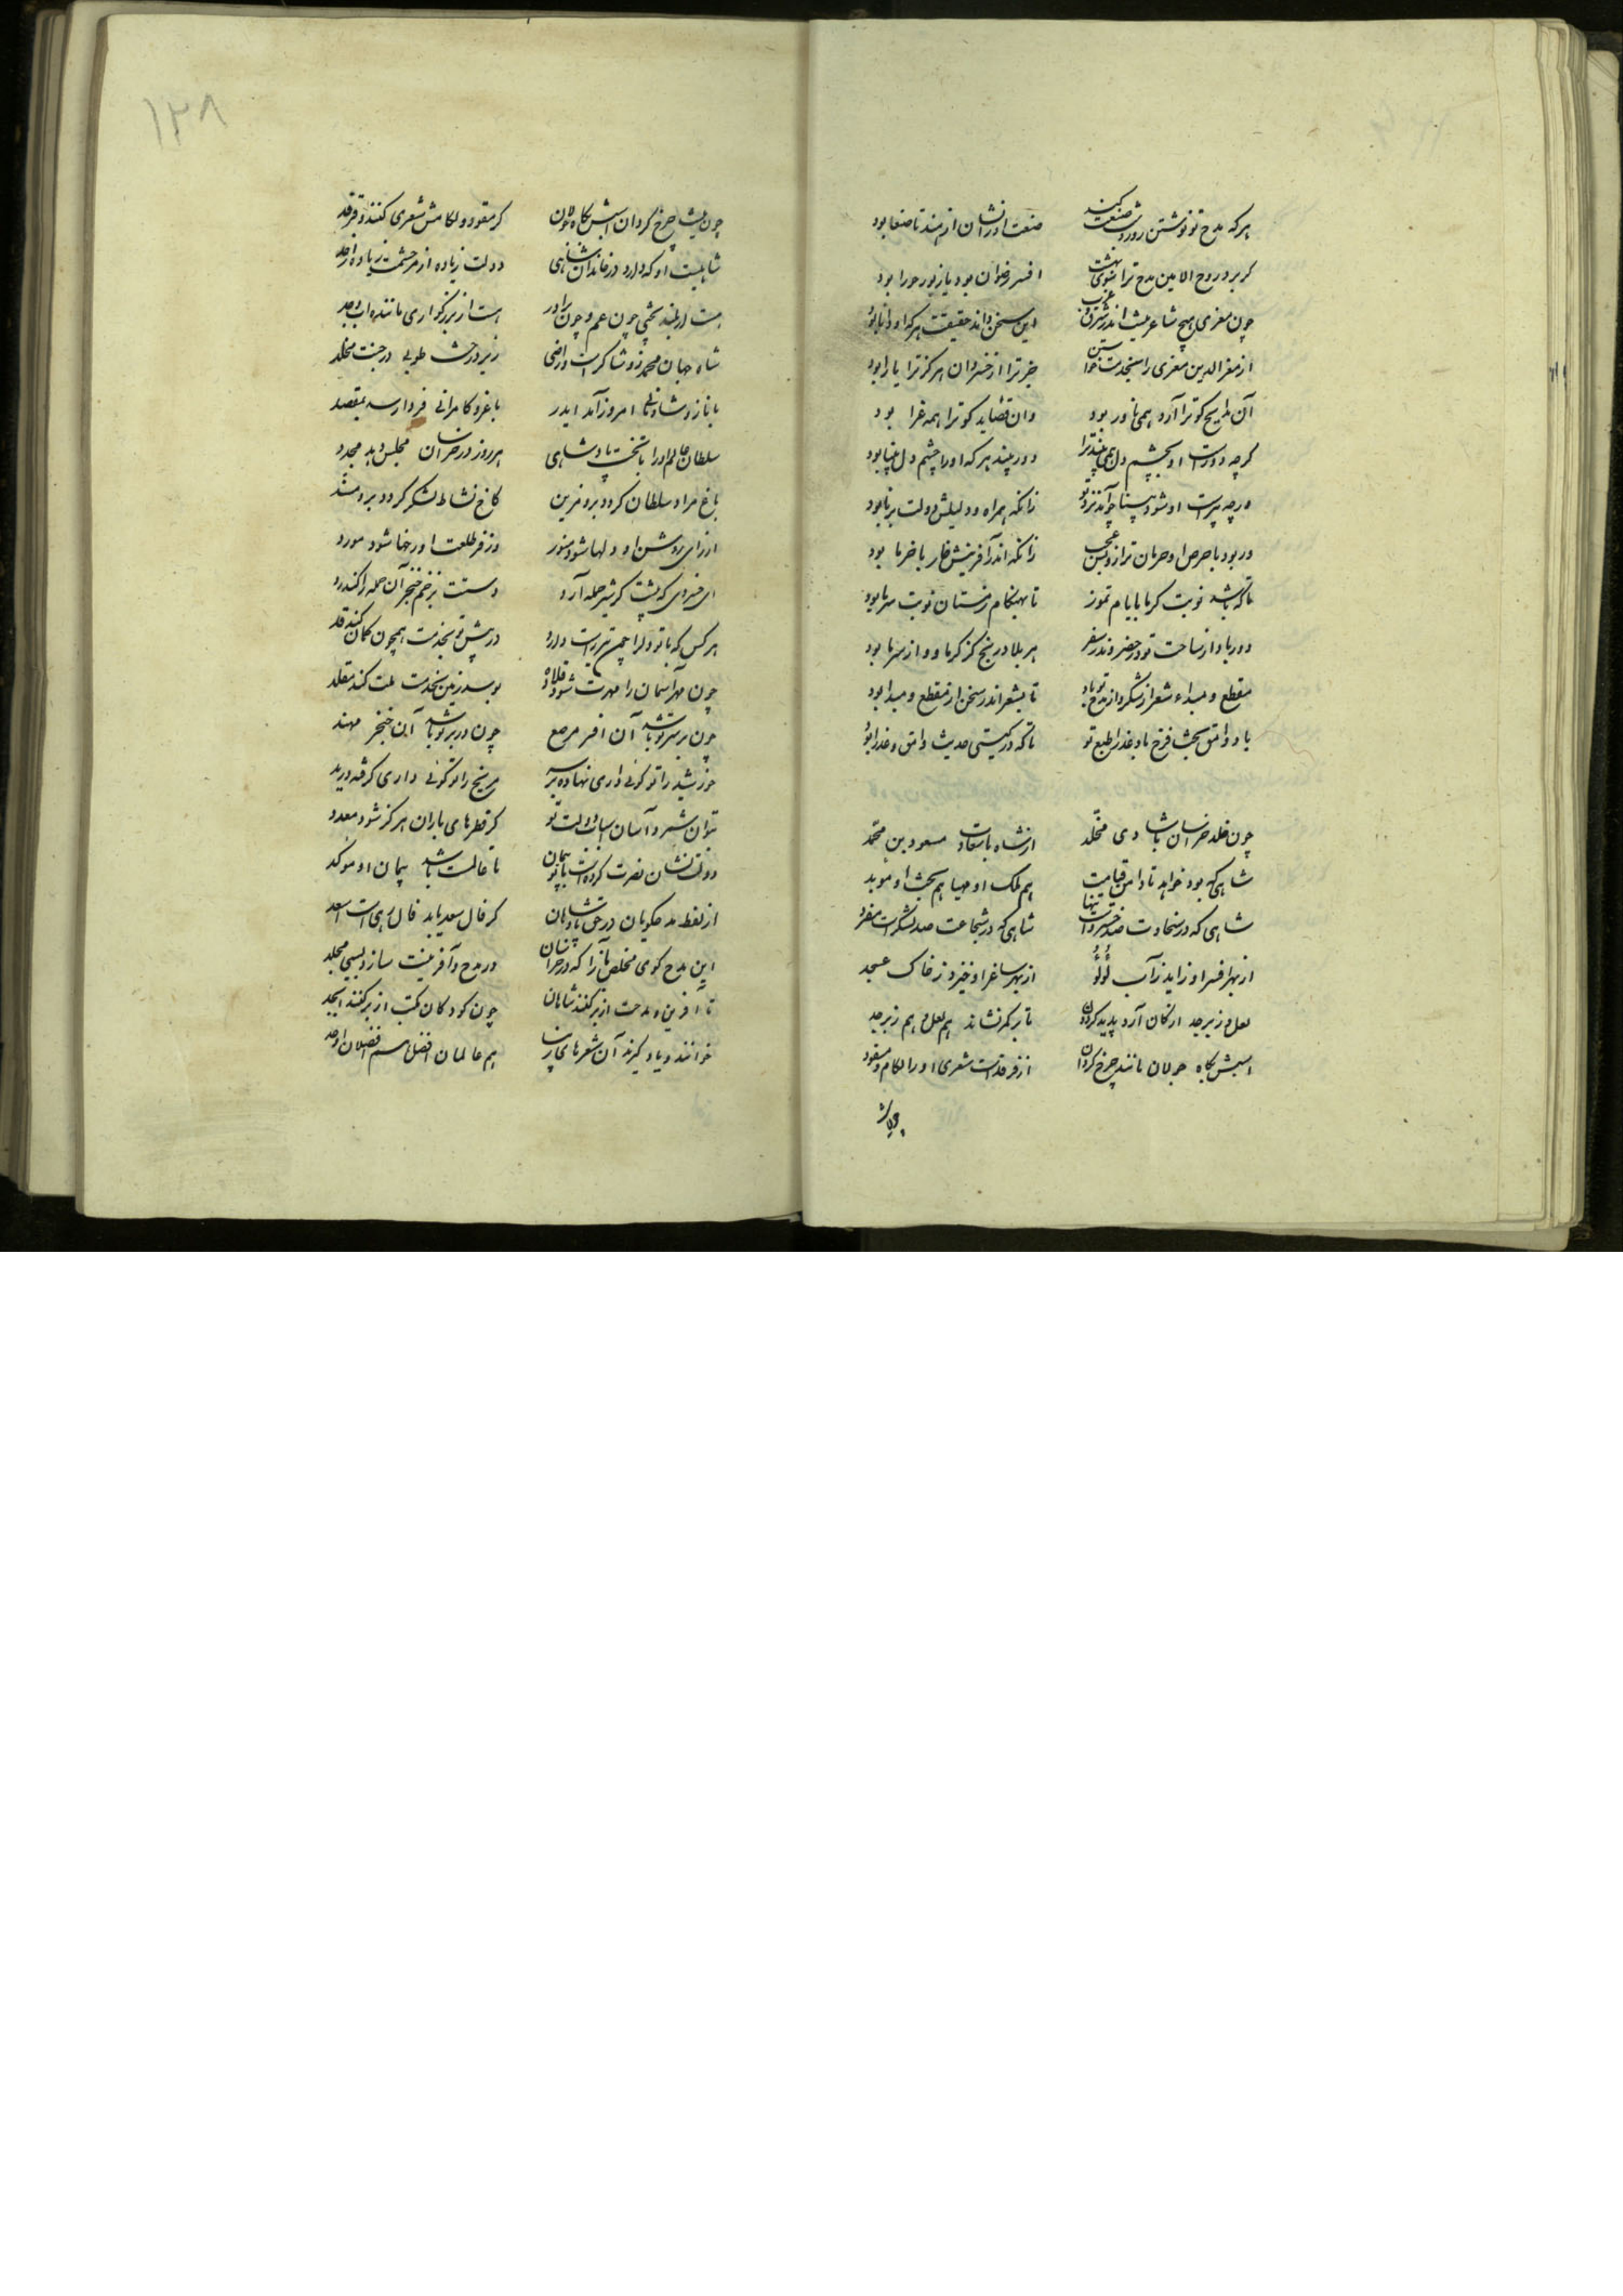 هرکه مدح تو نوشتن روز و شب صنعت کند صنعت او را نشان از هند تا صنعا بود
گر برد روح الامین مدح ترا سوی بهشت افسر رضوان بود یا زیور حورا بود
چون معزی هیچ شاعر نیست اندر شرق و غرب این سخن داند حقیقت هرکه او دانا بود
از معز الدین معزی را بخدمت خواستن جز ترا از خسروان هرگز ترا یارا بود
آن مدایح کو ترا آرد همی نادر بود وان قصاید کو ترا همه غرا بود
گرچه دورست او بچشم دل همی بیند ترا دور بیند هرکه او را چشم دل بینا بود
ورچه پیرست او شود برنا چو آید نزد تو زانکه همراه و دلیلش دولت برنا بود
ور بود با حرص او حرمان ترا زو بس عجب زانکه اندر آفرینش خار با خرما بود
تا که باشد نوبت گرما بایام تموز تا بهنگام زمستان نوبت سرما بود
دور باد از ساحت تو در حضر و ندر سفر هر بلا و رنج کز گرما و از سرما بود
مقطع و مبداء شعر از شکر و از مدح تو باد تا بشعر اندر سخن از مقطع و مبدا بود
باد وامق بخت فرخ باد عذرا طبع تو تا که در گیتی حدیث وامق و عذرا بود
چون خلد شد خراسان با شادی مخلد از شاه با سعادت مسعود بن محمد
شاهی که بود خواهد تا دامن قیامت هم ملک او مهیا هم بخت او موید
شاهی که در سخاوت صد خسروست تنها شاهی که در شجاعت صد لشکرست مفرد
از بهر افسر او زاید ز آب لؤلؤ از بهر ساغر او خیزد ز خاک عسجد
لعل و زبرجد از کان آرد پدید گردون تا بر کمر نشاند هم لعل و هم زبرجد
اسبش بگاه جولان مانند چرخ گردان از فرقدست شعری او را لگام و مقود
چون نیست
۱۲۸
چون نیست چرخ گردان اسبش بگاه جولان گر مقود و لگامش شعری کنند و فرقد
شاهیست او که دارد در خاندان شاهی دولت زیاده از مر حشمت زیاده از حد
هست از بلند بختی چون عم و چون برادر هست از بزرگواری ماننده اب و جد
شاه جهان محمد زو شاکرست و راضی زیر درخت طوبی در جنت مخلد
با ناز و شادمانی امروز آمد ایدر با عز و کامرانی فردا رسد بمقصد
سلطان عالم او را با تخت پادشاهی هر روز در خراسان مجلس دهد مجدد
باغ مراد سلطان گردد برو مزین کاخ نشاط لشکر گردد برو مشید
از رای روشن او دلها شود منور وز فر طلعت او رخها شود مورد
ای خسروی که پیشت گر شیر حمله آرد دستت بزخم خنجر آن حمله را کند رد
هرکس که با تو دل را چون تیر راست دارد در پیش تو بخدمت همچون کمان کند قد
چون مهر آسمان را مهرت شود قلاده بوسد زمین بخدمت ملت کند مقلد
چون بر سر تو باشد آن افسر مرصع چون در بر تو باشد آن خنجر مهند
خورشید را تو گوئی داری نهاده بر سر مریخ را تو گوئی داری گرفته در ید
نتوان شمرد آسان اسباب دولت تو گر قطرهای باران هرگز شود معدد
دولت نشان نصرت کردست با تو پیمان تا عالمست باشد پیمان او موکد
از لفظ مدح گویان در حق پادشاهان گر فال سعد یابد فال رهی است اسعد
این مدح گوی مخلص باز آ که در خراسان در مدح و آفرینت سازد بسی مجلد
تا آفرین و مدحت از بر کنند شاهان چون کودکان مکتب از بر کنند ابجد
خوانند و یاد گیرند آن شعرهای هم عالمان افضل هم فاضلان اوحد